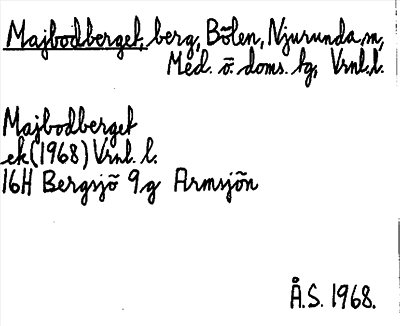 Majbodberget, berg, Bölen, Njurunda sn,
Med. ö. doms. tg, Vrnl. l.
Majbodberget
ek (1968) Vrnl. l.
16H Bergsjö 9 g Armsjön
Å.S. 1968.